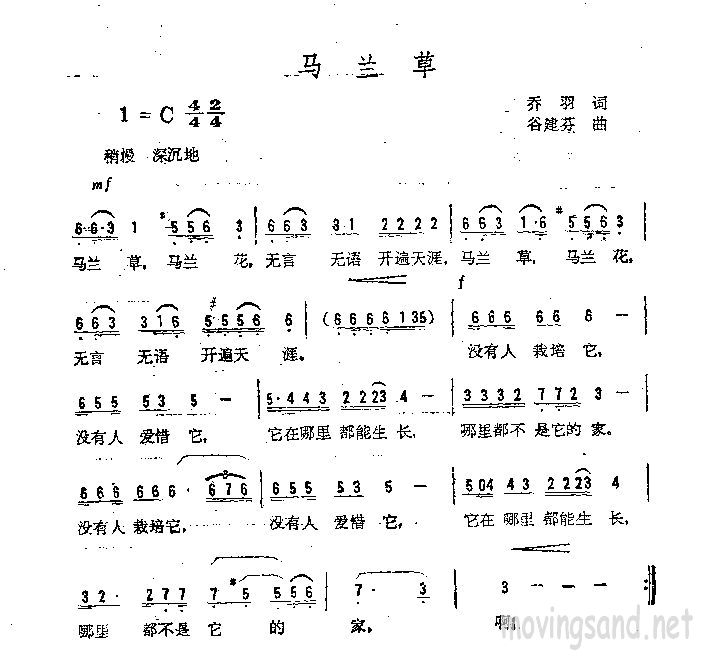 马兰草
1 = C 4/4 2/4
乔羽 词
谷建芬 曲
稍慢 深沉地
mf
6 6·3 1 #5 5 6 3 | 6 6 3 3 1 2 2 2 2 | 6 6 3 1·6 #5 5 6 3 |
马兰 草， 马兰 花， 无言 无语 开遍天涯， 马兰 草， 马兰 花，
f
6 6 3 3 1 6 #5 5 5 6 6 | (6 6 6 6 1 3 5) | 6 6 6 6 6 6 – |
无言 无语 开遍天 涯。 没有人 栽培 它，
6 5 5 5 3 5 – | 5·4 4 3 2 2 2 3 4 – | 3 3 3 2 7 7 2 3 – |
没有人 爱惜 它， 它在哪里 都能生 长， 哪里都不 是它的 家。
6 6 6 6 6 6 · 6 7 6 | 6 5 5 5 3 5 – | 5 0 4 4 3 2 2 2 3 4 |
没有人 栽培它， 没有人 爱惜 它， 它在 哪里 都能生 长，
3 2 · 2 7 7 7 #5 5 5 6 | 7 · 3 | 3 – – :||
哪里 都不是 它 的 家， 啊！
movingsand.net